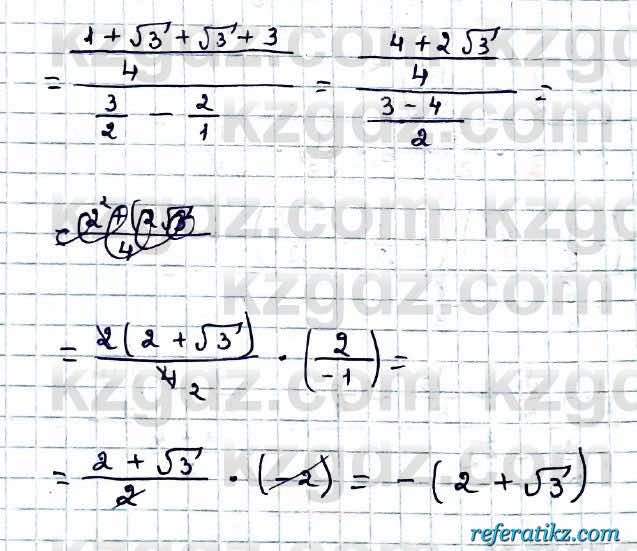 = (1 + √3 + √3 + 3)/4 / (3/2 − 2/1) = (4 + 2√3)/4 / (3 − 4)/2 =
= 2(2 + √3)/4 2 · (2/−1) =
= (2 + √3)/2 · (−2) = −(2 + √3)
kzgdz.com
referatikz.com